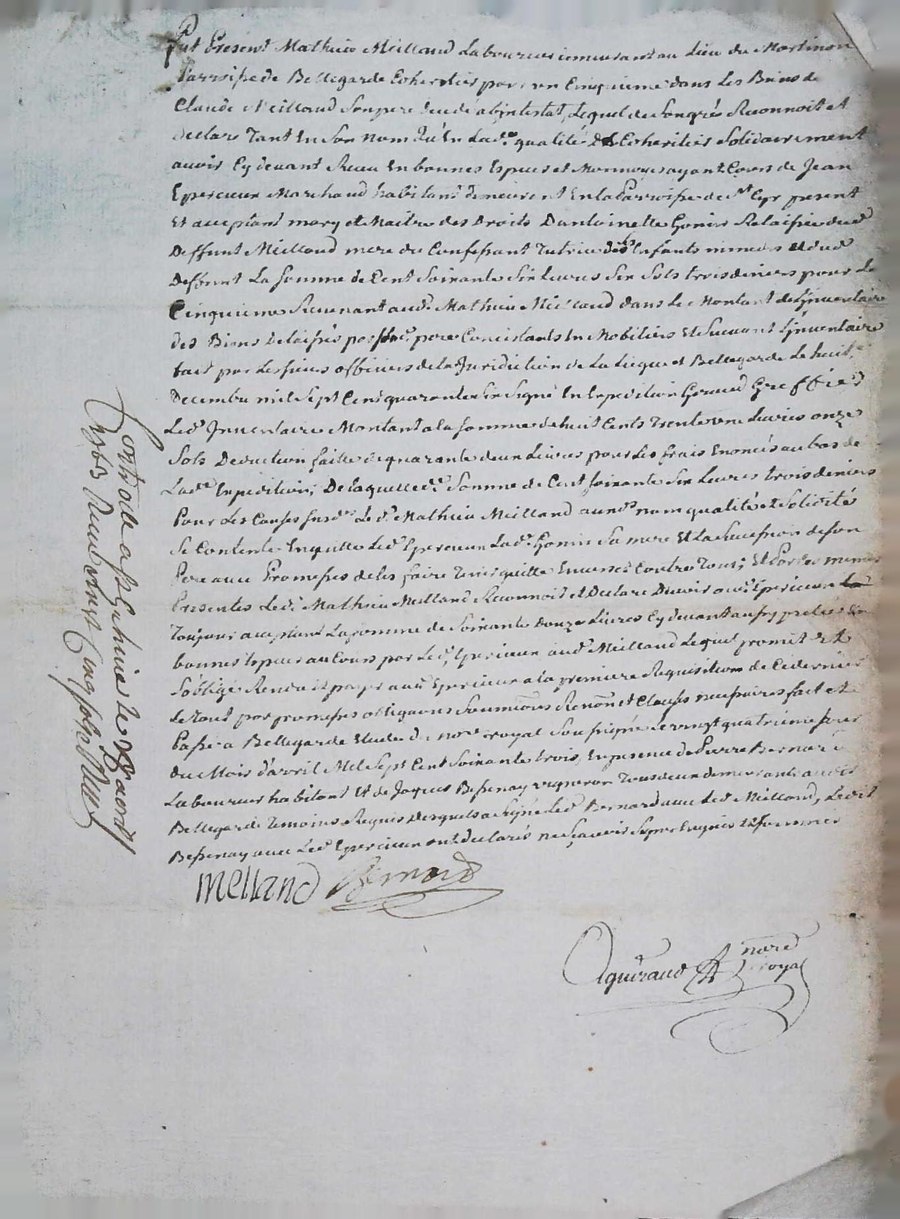 fut Present Mathieu Meilland Laboureur demeurant au Lieu du Martinon
Parroisse de Bellegarde Coheritier pour un Cinquieme dans Les Biens de
Claude Meilland Son pere decedé abintestat, Lequel de Son gré Reconnoit et
declare Tant En Son nom qu'En Lad.e qualité de Coheritier Solidairement
avoir Cy devant Receu En bonnes Especes et Monnoyes ayant Cours de Jean
Epercieux Marchand habitant demeurant En la Parroisse de St Cyr present
Et acceptant mary et Maitre des Droits D'antoinette Gonin Relaissée dud.
Deffunt Meilland mere du Confessant Tutrice des Enfants mineurs dud.
Deffunt La somme de Cent Soixante Six Livres Six Sols trois deniers pour Le
Cinquieme Revenant aud. Mathieu Meilland dans Le Montant de L'inventaire
des Biens delaissés par Son pere Concistants En Mobiliers Et Suivant L'inventaire
fait par Les sieurs officiers de La Juridiction de La Liegue et Bellegarde Le huit
Decembre mil Sept Cent quarante Six Signé En Expedition Greffier
Led. Inventaire Montant a la Somme de huit Cents Trente une Livres onze
Sols Deduction faitte de quarante deux Livres pour Les frais Enoncés au bas de
Lad.e Expedition; De laquelle d.e Somme de Cent Soixante Six Livres trois deniers
Pour Les Causes Susd. Le d. Mathieu Meilland aud. nom qualité et Solidité
Se Contente En quitte Led. Epercieux Lad. Gonin Sa mere Et La Succession de Son
Pere avec Promesse de les faire Tenir quitte Envers et Contre Tous; Et Par Les memes
Presentes Led. Mathieu Meilland Reconnoit et Declare Devoir aud. Epercieux
Toujours acceptant La Somme de Soixante Douze Livres Cy devant
bonnes Especes au Cours par Led. Epercieux aud. Meilland Lequel promet et
S'oblige Rendre et payer aud. Epercieux a la premiere Requisition de Ce dernier
Le tout par promesses obligations Soumissions Renon.n et Clauses necessaires fait et
Passé a Bellegarde Etude du no.re royal Soussigné Le vingt quatrieme jour
Du Mois d'avril Mil Sept Cent Soixante trois, En presence de Pierre Bernard
Laboureur habitant Et de Jaques Bessenay vigneron Tous deux demeurants aud.
Bellegarde Temoins Requis Desquels a Signé Led. Bernard avec Led. Meilland, Ledit
Bessenay avec Led. Epercieux ont declarés ne Scavoir Signer Enquis Et Sommés
Melland Bernard
Aguiraud no.re royal